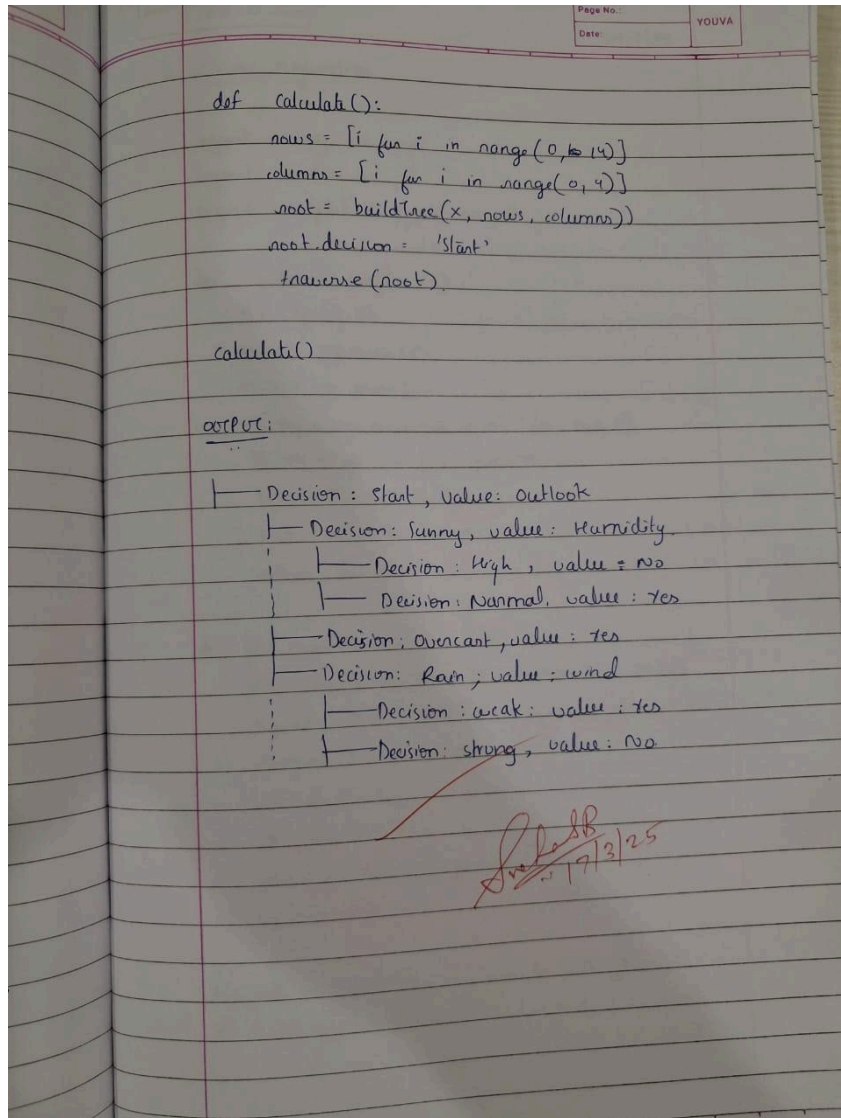 Page No.:
Date:
YOUVA
def calculate():
rows = [i for i in range(0, 14)]
columns = [i for i in range(0, 4)]
root = buildTree(x, rows, columns))
root.decision = 'Start'
traverse(root)
calculate()
OUTPUT:
Decision : Start, value: Outlook
Decision: Sunny, value: Humidity
Decision : High, value = No
Decision: Normal, value : Yes
Decision: Overcast, value : Yes
Decision: Rain ; value : wind
Decision : weak : value : Yes
Decision: strong, value: No
17/3/25